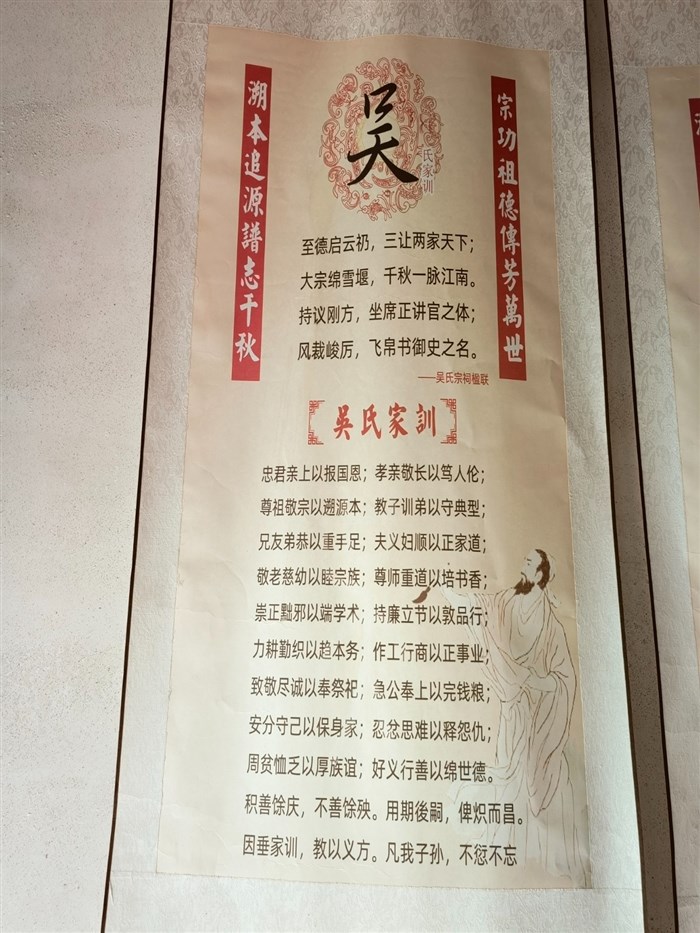 宗功祖德傳芳萬世
溯本追源譜志千秋
吴
氏家训
至德启云礽，三让两家天下；
大宗绵雪堰，千秋一脉江南。
持议刚方，坐席正讲官之体；
风裁峻厉，飞帛书御史之名。
——吴氏宗祠楹联
吴氏家訓
忠君亲上以报国恩；孝亲敬长以笃人伦；
尊祖敬宗以遡源本；教子训弟以守典型；
兄友弟恭以重手足；夫义妇顺以正家道；
敬老慈幼以睦宗族；尊师重道以培书香；
崇正黜邪以端学术；持廉立节以敦品行；
力耕勤织以趋本务；作工行商以正事业；
致敬尽诚以奉祭祀；急公奉上以完钱粮；
安分守己以保身家；忍忿思难以释怨仇；
周贫恤乏以厚族谊；好义行善以绵世德。
积善馀庆，不善馀殃。用期後嗣，俾炽而昌。
因垂家训，教以义方。凡我子孙，不愆不忘